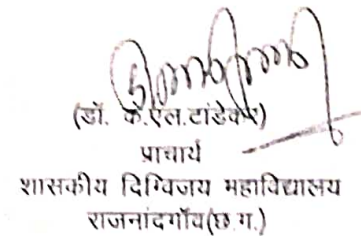 (डॉ. के.एल.टांडेकर)
प्राचार्य
शासकीय दिग्विजय महाविद्यालय
राजनांदगॉव(छ.ग.)